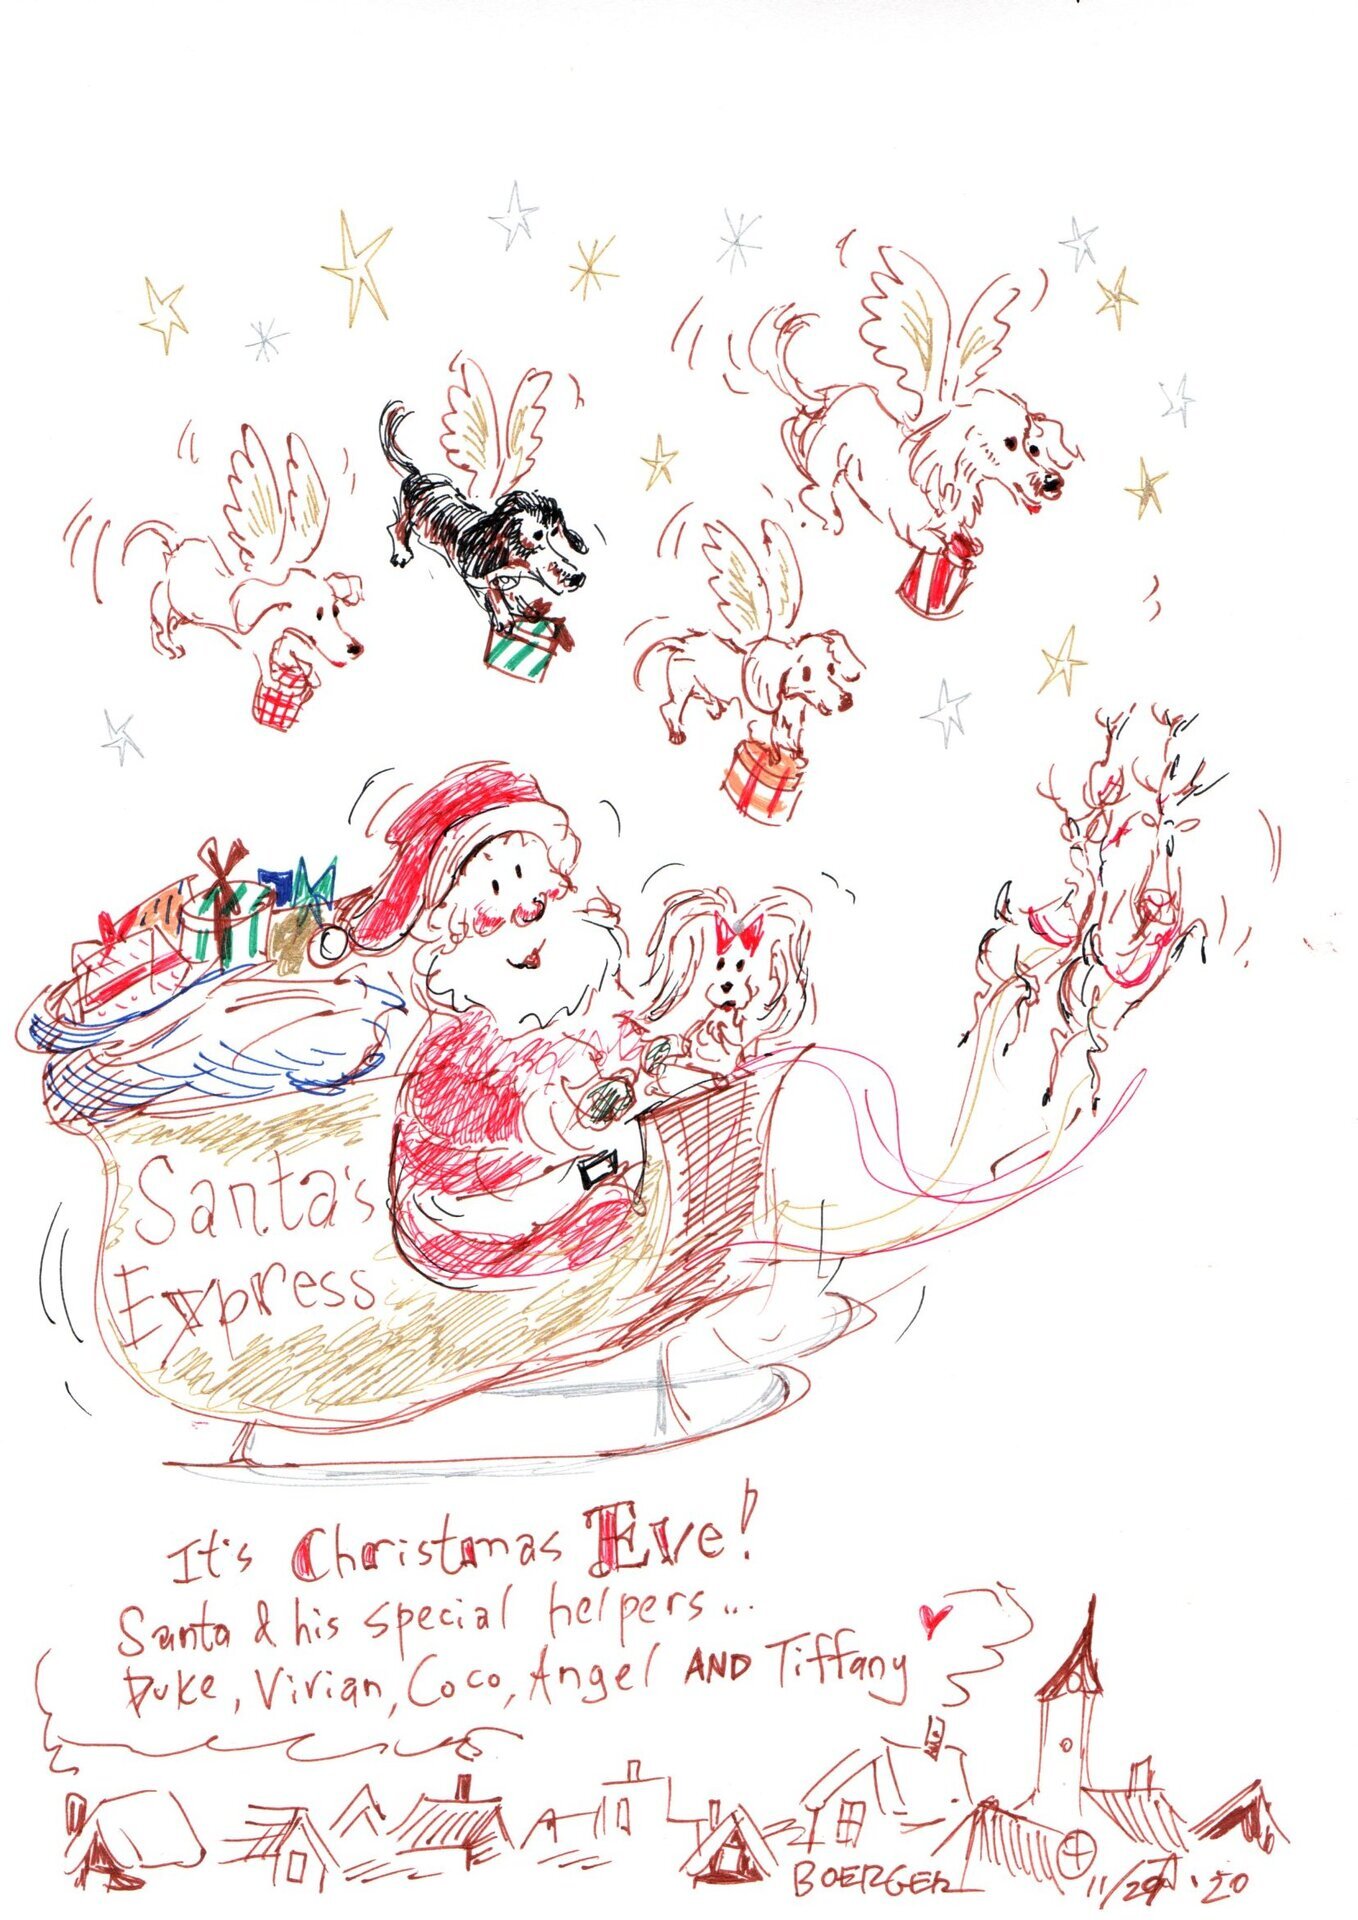 Santa's
Express
It's Christmas Eve!
Santa & his special helpers...
Duke, Vivian, Coco, Angel AND Tiffany
BOERGER 11/29 '20